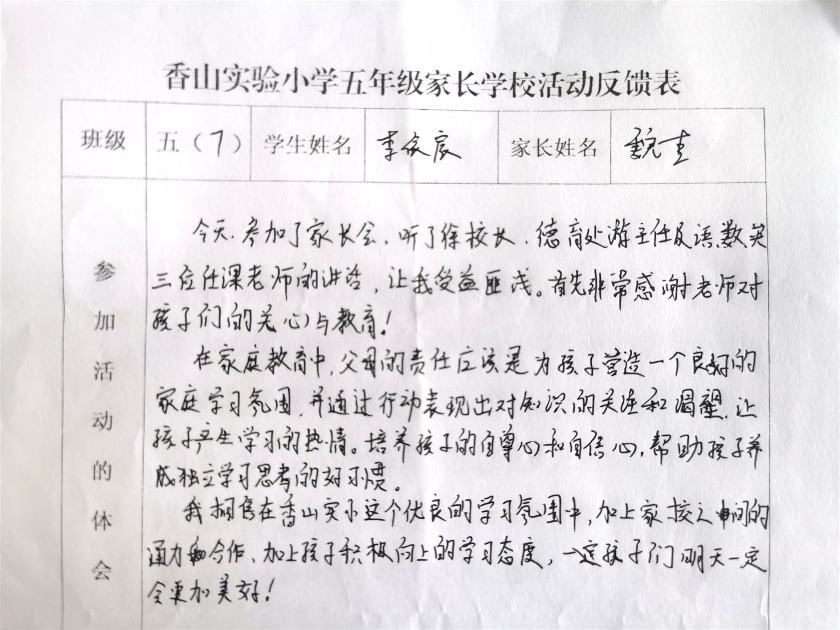 香山实验小学五年级家长学校活动反馈表
班级 五（7） 学生姓名 李 家长姓名 魏
参加活动的体会
今天.参加了家长会.听了徐校长.德育处游主任及语数英
三位任课老师的讲话，让我受益匪浅。首先非常感谢老师对
孩子们的关心与教育！
在家庭教育中,父母的责任应该是为孩子营造一个良好的
家庭学习氛围,并通过行动表现出对知识的关注和渴望,让
孩子产生学习的热情。培养孩子的自尊心和自信心,帮助孩子养
成独立学习思考的好习惯。
我相信在香山实小这个优良的学习氛围中,加上家校之间的
通力合作、加上孩子积极向上的学习态度，孩子们明天一定
会更加美好！